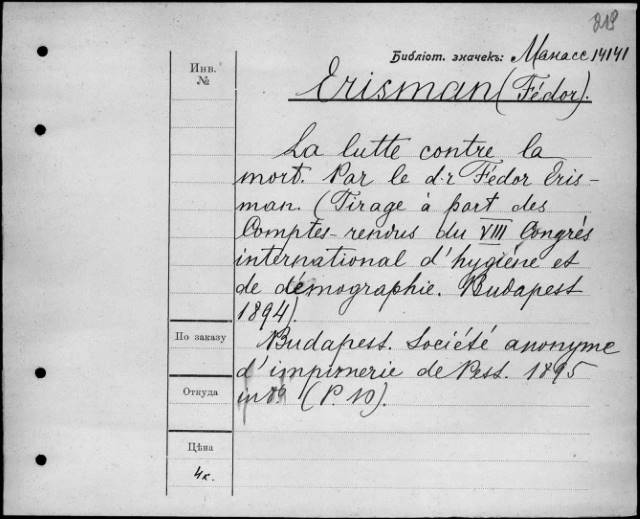 213
Библіот. значекъ: Манасс 14141
Инв.
№
Erisman (Fédor).
La lutte contre la
mort. Par le d-r Fédor Eris-
man. (Tirage à part des
Comptes-rendus du VIII Congrés
international d'hygiéne et
de démographie. Budapest
1894).
По заказу
Budapest. Société anonyme
d'imprimerie de Pest. 1895
Откуда
in 8º. (P. 10).
Цѣна
4к.